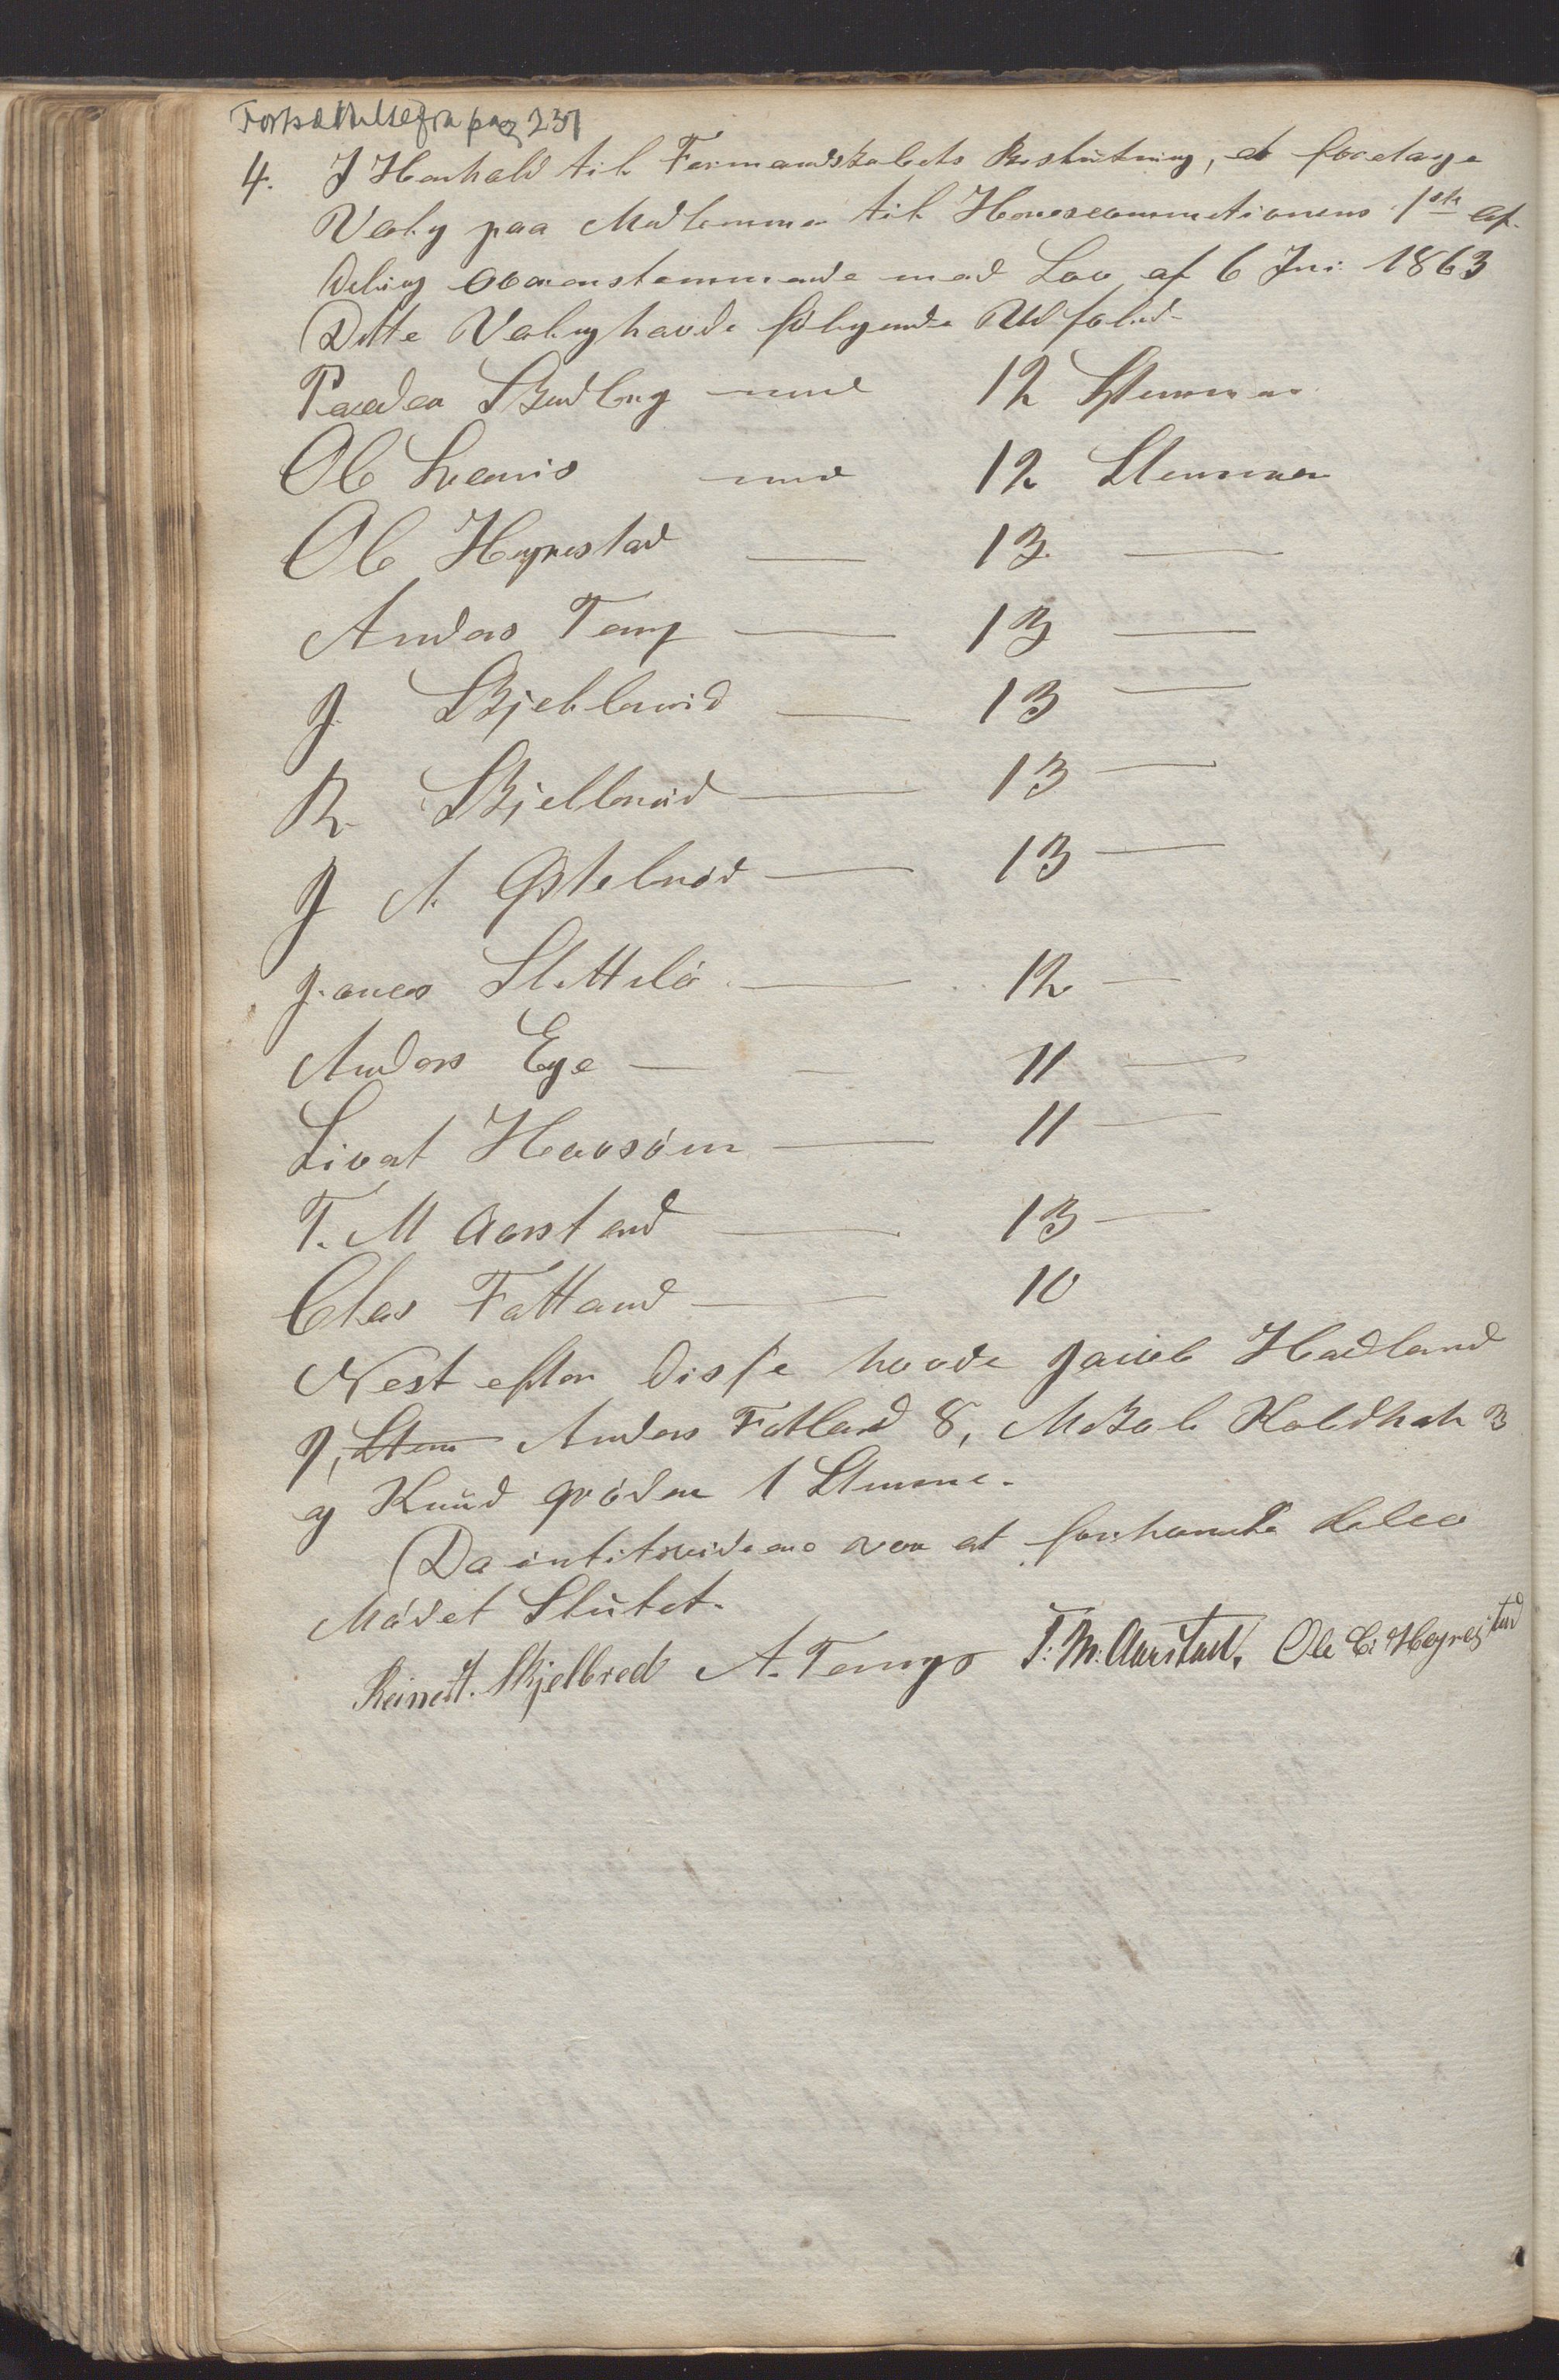 Fortsættelse fra pag 237
4. I Henhold til Formandskabets Beslutning, at foretage
Valg paa Medlemmer til Herredscommetionens 1ste af-
deling overenstemmende med Lov af 6 Juni 1863
Dette Valg havde følgende Udfald
Peder med 12 Stemmer
Ole med 12 Stemmer
Ole Høgrestad — 13 —
Anders Teng — 13 —
J Skjelbreid — 13 —
R. Skjelbreid — 13 —
J A. Østebrød — 13 —
Slettebø — 12 —
Anders Ege — — 11 —
Sivert Hovsøen — 11 —
T. M Aarstad — 13 —
Clas Fotland — 10
Nest efter disse havde Jacob Hadland
9, Stem Anders Fotland 8, 3
og Knud Grøden 1 Stemme.
Da intet videre var at forhandle blev
Mødet Slutet.
Reinert. Skjelbred A. Tengs T. M. Aarstad. Ole C. Høgrestad